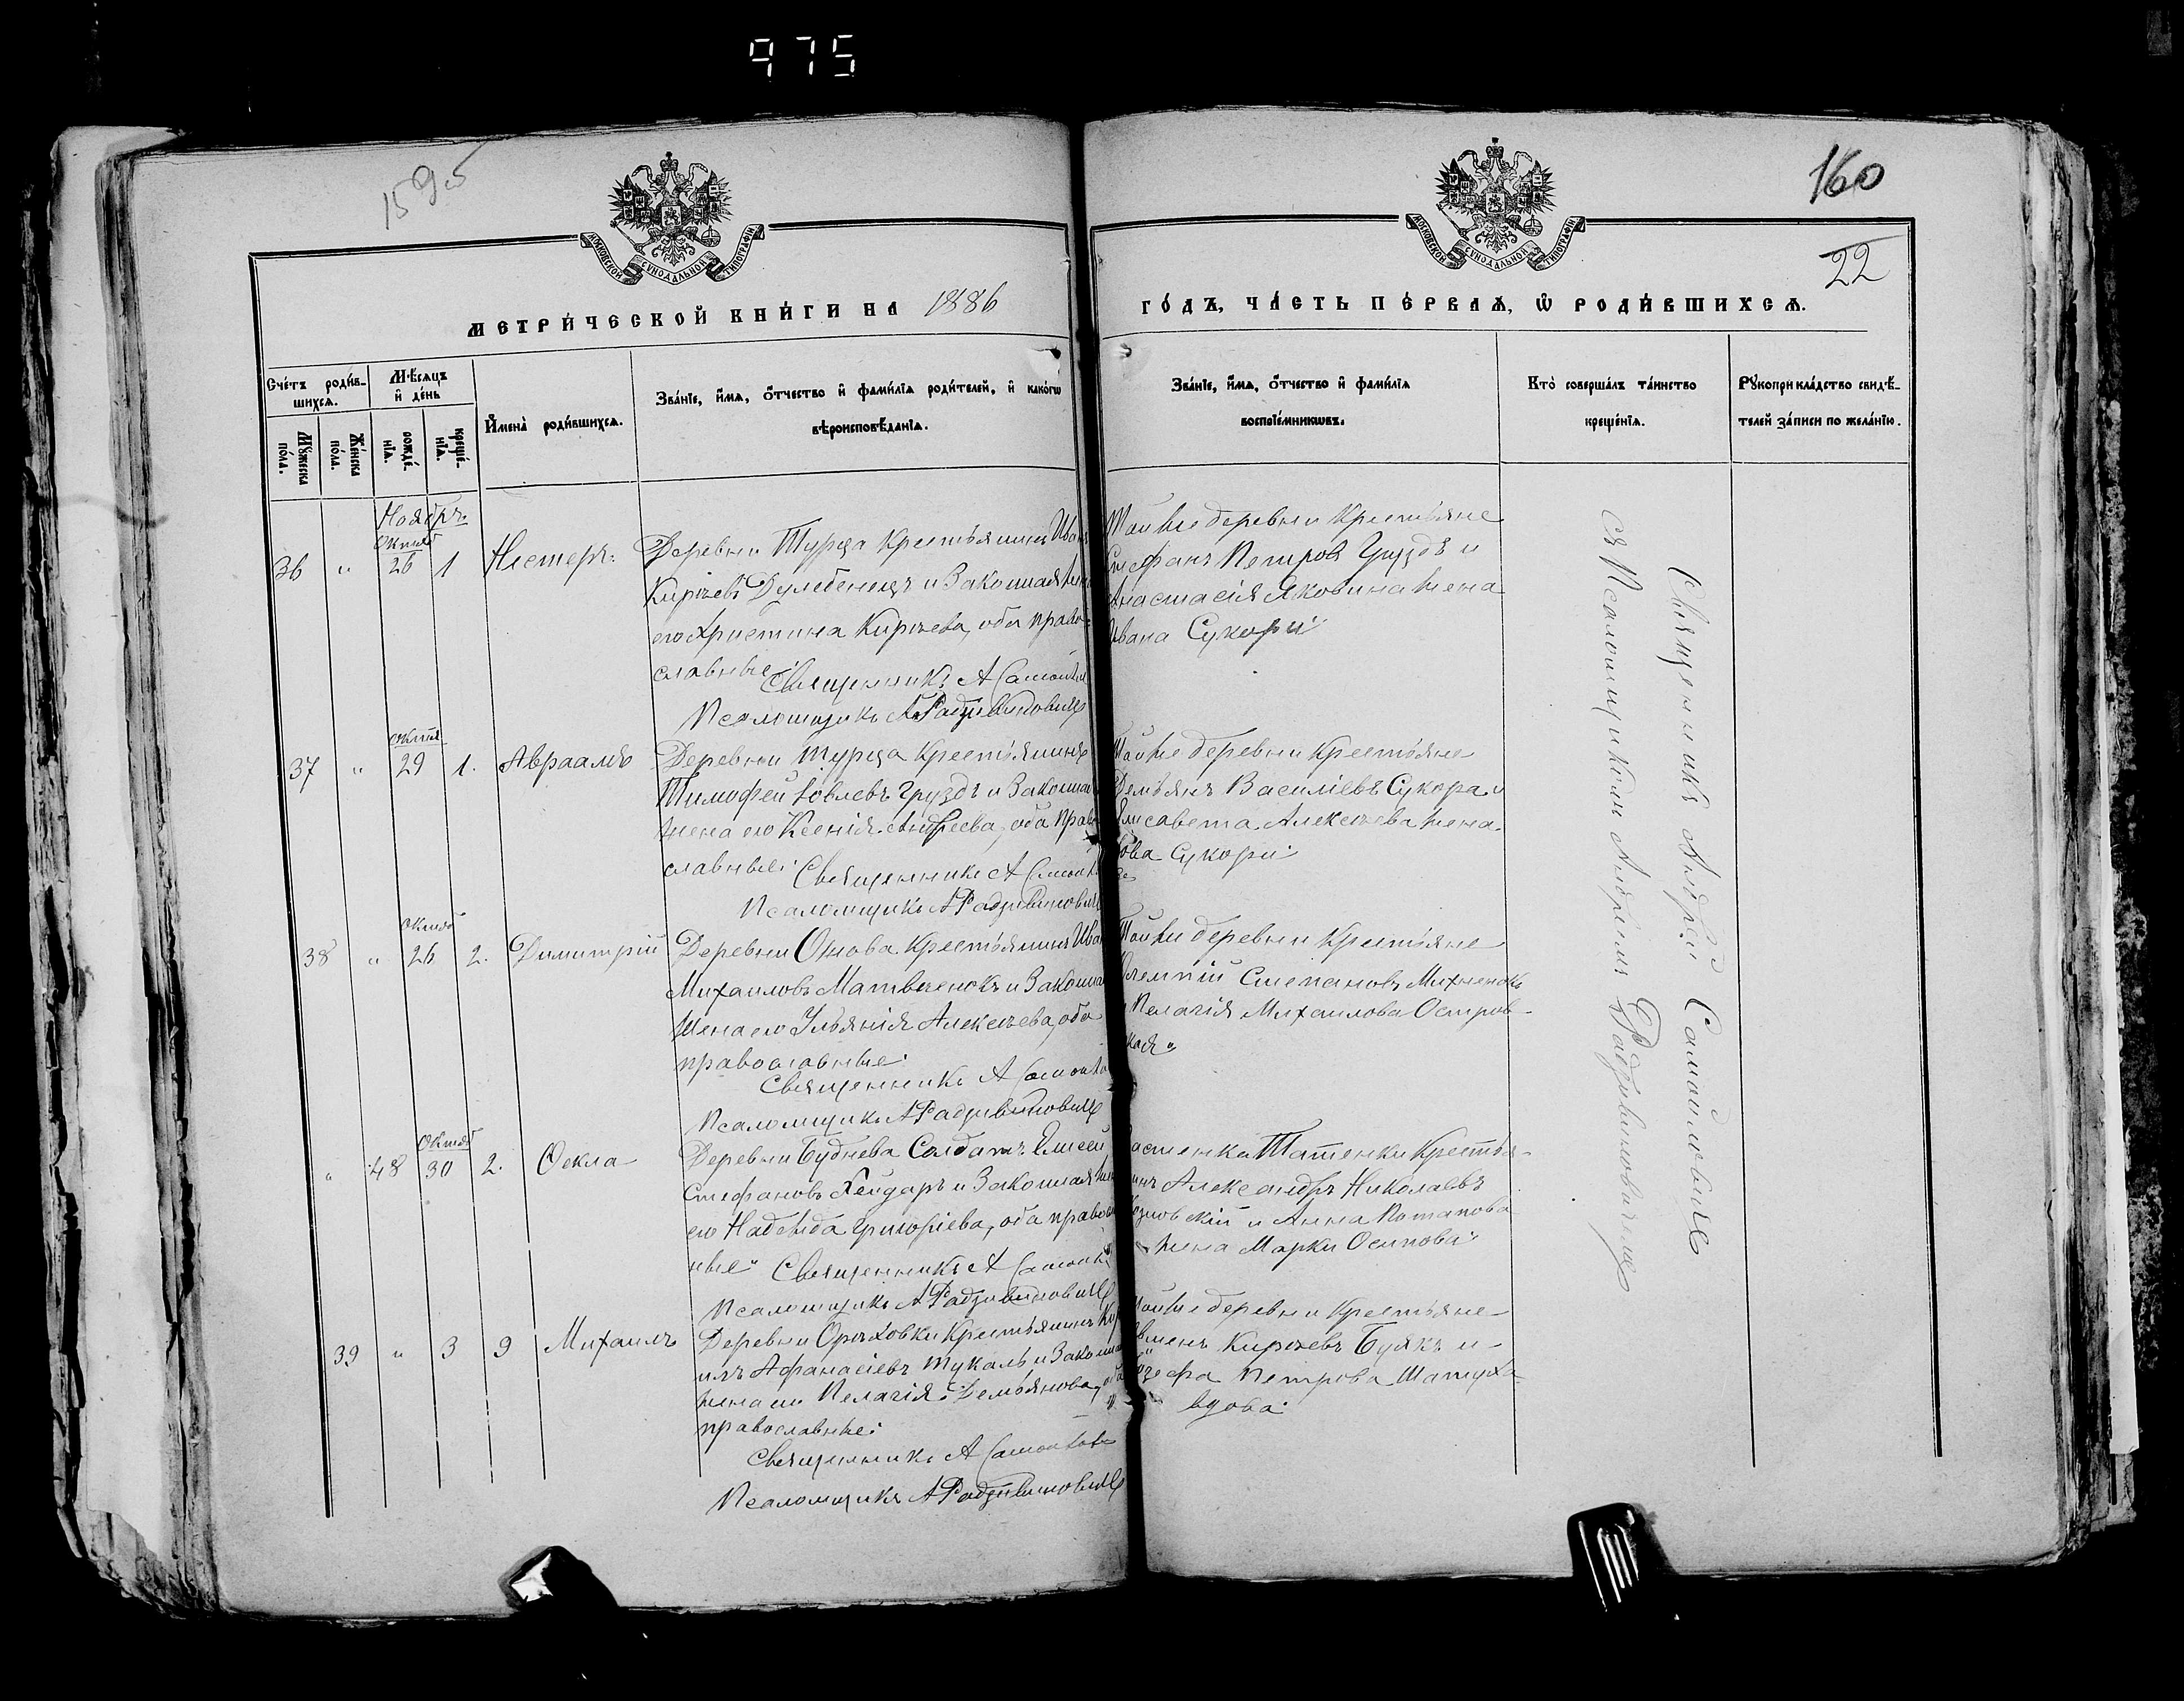 975
159об
160
22
МОСКОВСКОЙ СУНОДАЛЬНОЙ ТИПОГРАФІИ
МОСКОВСКОЙ СУНОДАЛЬНОЙ ТИПОГРАФІИ
МЕТРИ́ЧЕСКОЙ КНИ́ГИ НА 1886
ГО́ДЪ, ЧА́СТЬ ПЕ́РВАѦ, Ѽ РОДИ́ВШИХСѦ.
Сче́тъ роди́в-
шихсѧ.
Мꙋ́жеска по́ла.
Же́нска по́ла.
Мѣ́сѧцъ
и҆ де́нь
рожде́-
нїѧ.
креще́-
нїѧ.
И҆мена̀ роди́вшихсѧ.
Зва́нїе, и҆́мѧ, ѻ҆́тчество и҆ фами́лїѧ роди́телей, и҆ како́гѡ
вѣроисповѣ́данїѧ.
Зва́нїе, и҆́мѧ, ѻ҆́тчество и҆ фами́лїѧ
воспрїе́мникѡвъ.
Кто̀ соверша́лъ та́инство
креще́нїѧ.
Рꙋкоприкла́дство свидѣ́-
телей за́писи по жела́нїю.
Ноябрь
Октяб
36 " 26 1 Нестеръ
Деревни Турца Крестьянинъ Иванъ
Кирѣевъ Дулебенецъ и Законная жена
его Христина Кирѣева, оба право-
славные
Священникъ А Самойло
Псаломщикъ А Радзивиновичъ
Той же деревни Крестьяне
Стефанъ Петровъ Груздъ и
Анастасія Яковина жена
Ивана Сукоры
Октя
37 " 29 1. Авраамъ
Деревни Турца Крестьянинъ
Тимофей Іовлевъ Груздъ и Законная
жена его Ксенія Андреева, оба право-
славные
Священникъ А Самойло
Псаломщикъ А Радзивиновичъ
Той же деревни Крестьяне
Демьянъ Василіевъ Сукора и
Елисавета Алексѣева жена
Іова Сукоры
Октяб
38 " 26 2. Димитрій
Деревни Ожова Крестьянинъ Иванъ
Михаиловъ Матвеенокъ и Законная
жена его Ульянія Алексѣева, оба
православные
Священникъ А Самойло
Псаломщикъ А Радзивиновичъ
Той же деревни Крестьяне
Степановъ Михненокъ
и Пелагія Михаилова Остров-
ская
Октяб
" 48 30 2. Ѳекла
Деревни Буднева Солдатъ Елисей
Стефановъ Хейдаръ и Законная жена
его Надежда Григоріева, оба православ-
ные
Священникъ А Самойло
Псаломщикъ А Радзивиновичъ
Застенка Татенки Крестья-
нинъ Александръ Николаевъ
и Анна Потапова
жена Марки Осипова
39 " 3 9 Михаилъ
Деревни Орѣховки Крестьянинъ
Афанасіевъ Тукаль и Законная
жена его Пелагія Демьянова, оба
православные
Священникъ А Самойло
Псаломщикъ А Радзивиновичъ
Той же деревни Крестьяне
Кирѣевъ Буякъ и
Іозефа Петрова Шатуха
вдова
Священникъ Андрей Самойловъ
съ Псаломщикомъ Андреемъ Радзивиновичемъ